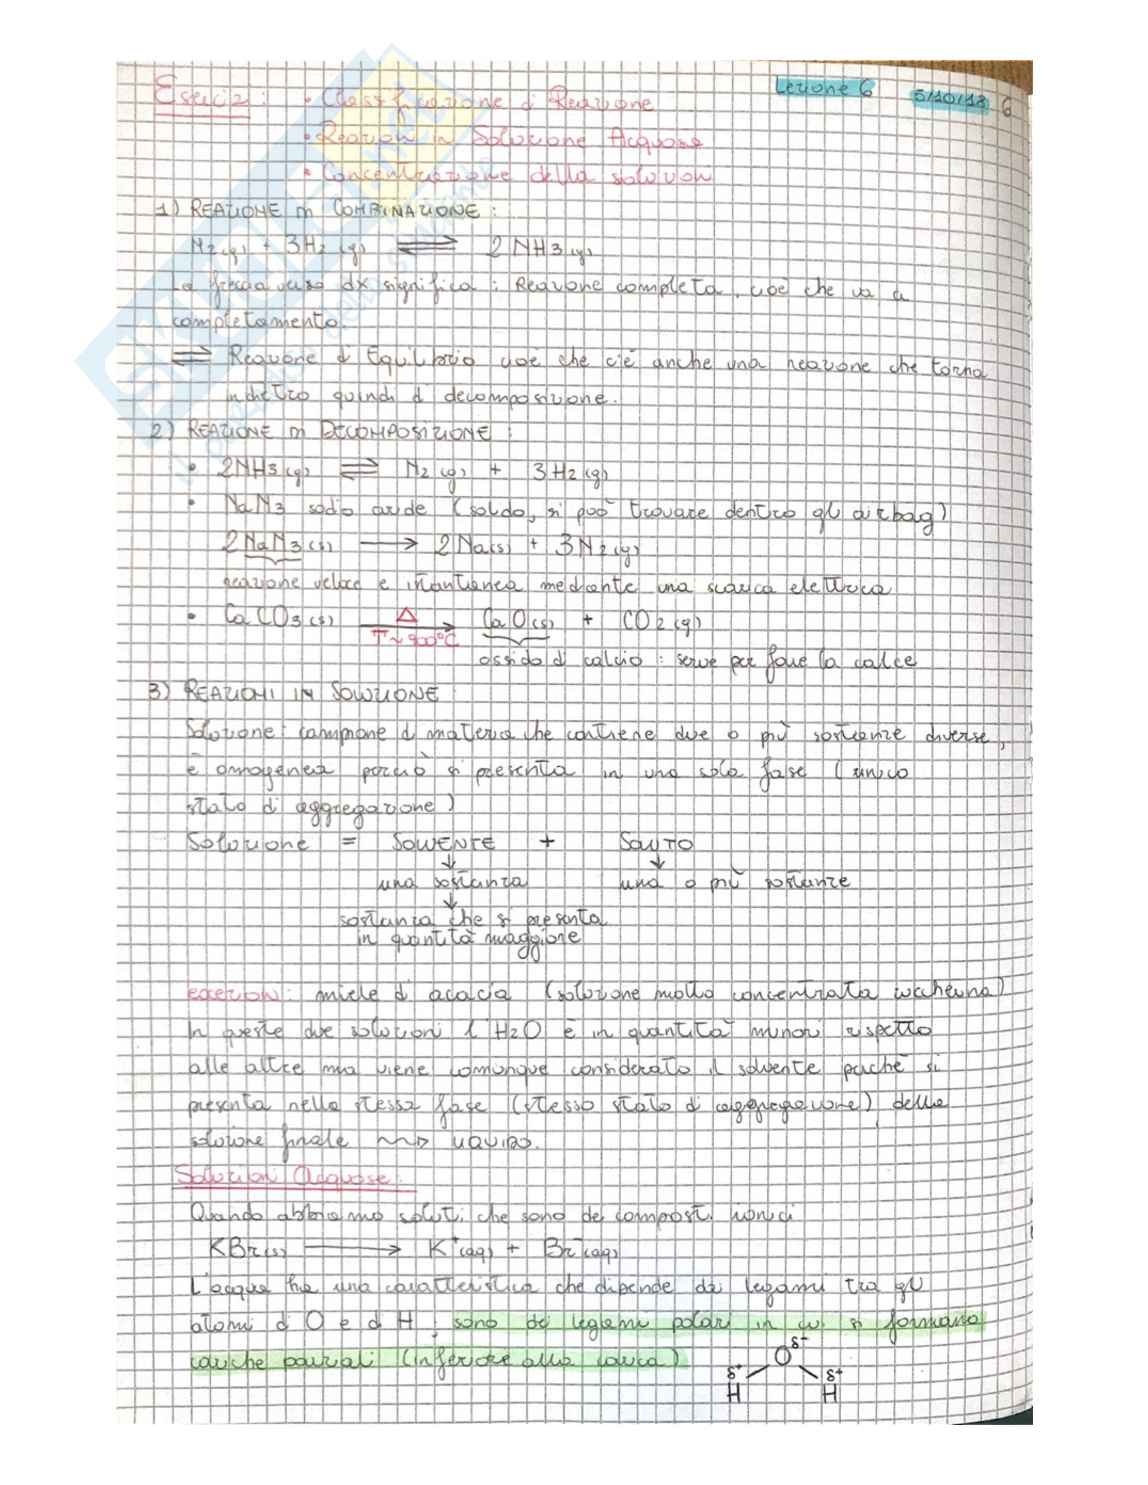 Lezione 6 5/10/18 6
Esercizi: • Classificazione di Reazione
• Reazioni in Soluzione Acquose
• Concentrazione della soluzioni
1) REAZIONE DI COMBINAZIONE:
N2(g) + 3H2(g) ⇌ 2NH3(g)
La freccia verso dx significa: Reazione completa, cioè che va a
completamento.
⇌ Reazione di Equilibrio cioè che c'è anche una reazione che torna
indietro quindi di decomposizione.
2) REAZIONE DI DECOMPOSIZIONE:
• 2NH3(g) ⇌ N2(g) + 3H2(g)
• NaN3 sodio azide (solido, si può trovare dentro gli airbag)
2NaN3(s) → 2Na(s) + 3N2(g)
reazione veloce e istantanea mediante una scarica elettrica
• CaCO3(s) → CaO(s) + CO2(g)
Δ
T~900°C
ossido di calcio: serve per fare la calce
3) REAZIONI IN SOLUZIONE:
Soluzione: campione di materia che contiene due o più sostanze diverse,
è omogenea perciò si presenta in una sola fase (unico
stato di aggregazione)
Soluzione = SOLVENTE + SOLUTO
↓ ↓
una sostanza una o più sostanze
↓
sostanza che si presenta
in quantità maggiore
eccezioni: miele di acacia (soluzione molto concentrata zuccherina)
In queste due soluzioni l'H2O è in quantità minori rispetto
alle altre ma viene comunque considerato il solvente perché si
presenta nella stessa fase (stesso stato di aggregazione) della
soluzione finale ⇝ LIQUIDO.
Soluzioni Acquose:
Quando abbiamo soluti che sono dei composti ionici
KBr(s) → K+(aq) + Br-(aq)
L'acqua ha una caratteristica che dipende dai legami tra gli
atomi di O e di H, sono dei legami polari in cui si formano
cariche parziali (inferiore alla carica)
δ-
O
δ+ δ+
H H